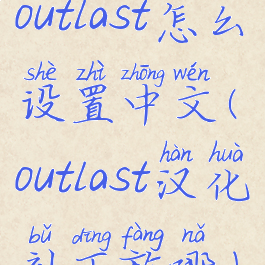 outlast怎么
shè zhì zhōng wén
设置中文(
hàn huà
outlast汉化
bǔ dīng fàng nǎ
补丁放哪)